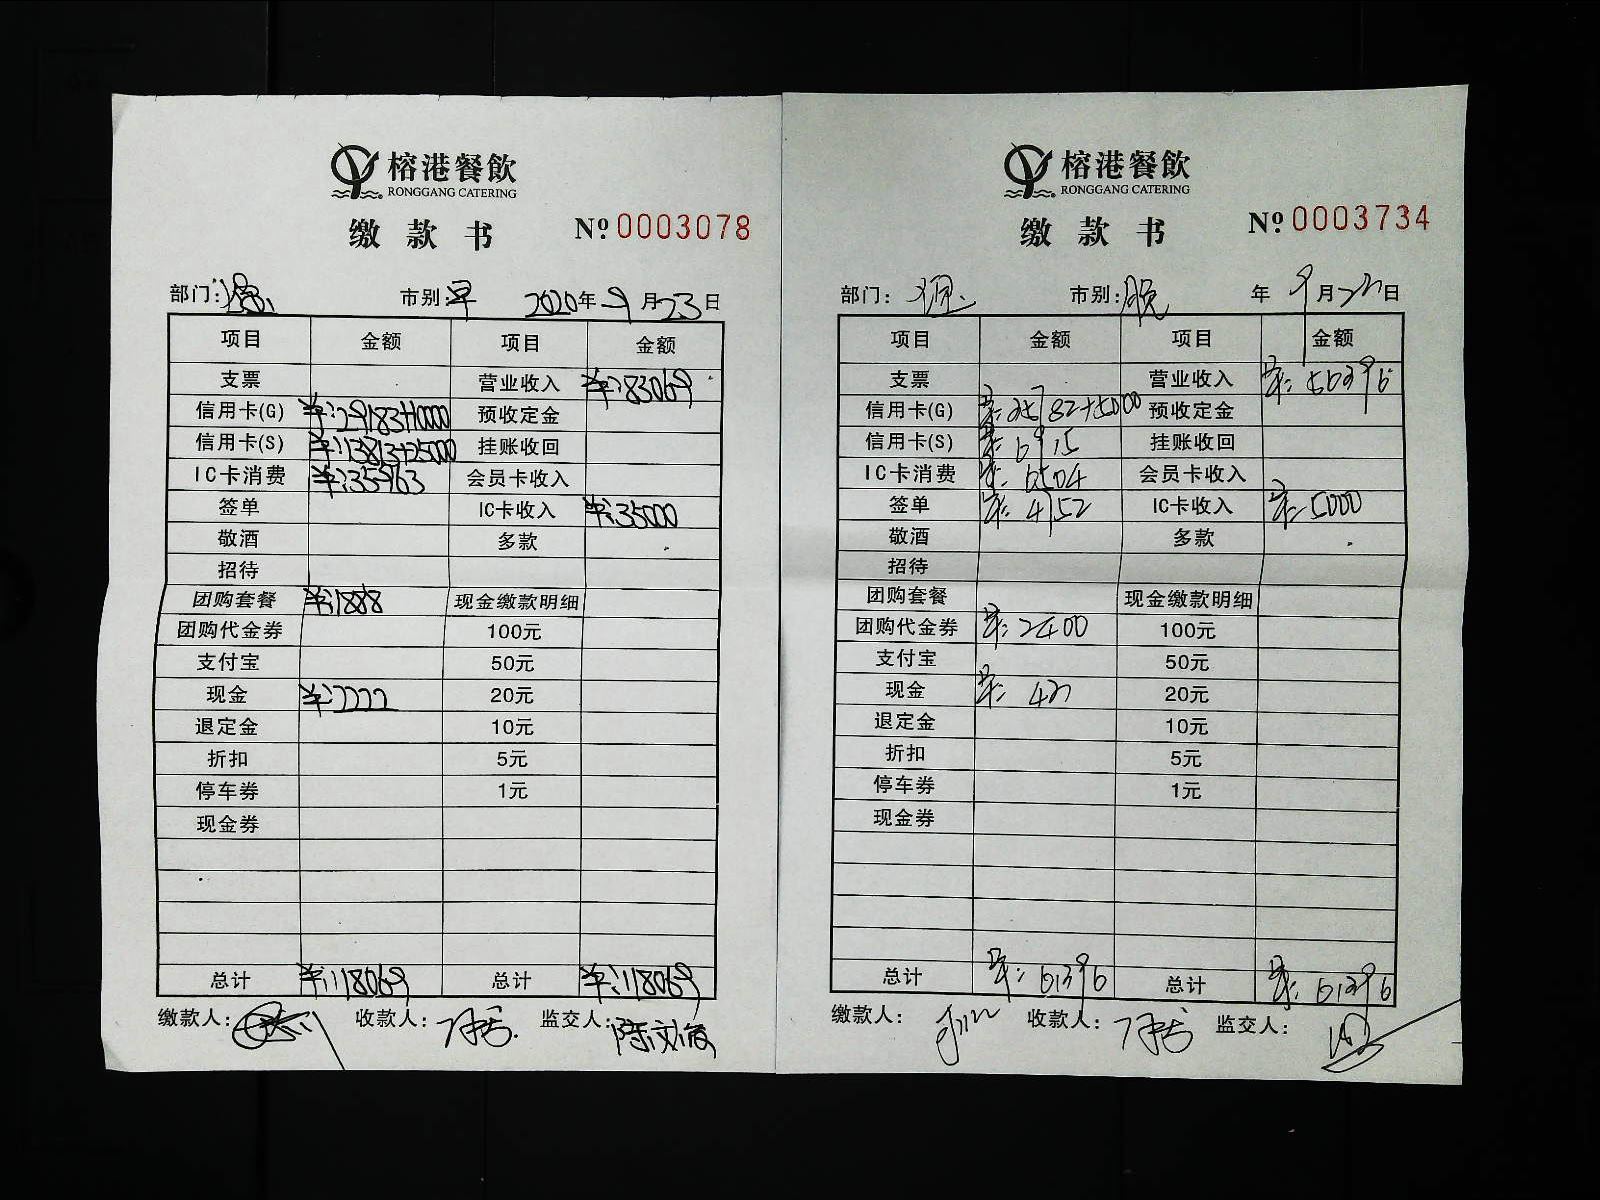 榕港餐飲
RONGGANG CATERING
缴款书 № 0003078
部门: 市别:早 2020年9月23日
项目 金额 项目 金额
支票 营业收入 ¥:83069
信用卡(G) ¥:29183+10000 预收定金
信用卡(S) ¥:13813+25000 挂账收回
IC卡消费 ¥:35963 会员卡收入
签单 IC卡收入 ¥:35000
敬酒 多款
招待
团购套餐 ¥:1888 现金缴款明细
团购代金券 100元
支付宝 50元
现金 ¥:2222 20元
退定金 10元
折扣 5元
停车券 1元
现金券
总计 ¥:118069 总计 ¥:118069
缴款人: 收款人: 监交人:
榕港餐飲
RONGGANG CATERING
缴款书 № 0003734
部门: 市别:晚 年9月23日
项目 金额 项目 金额
支票 营业收入 ¥:56396
信用卡(G) 预收定金
信用卡(S) ¥:6915 挂账收回
IC卡消费 ¥:6504 会员卡收入
签单 ¥:4152 IC卡收入 ¥:5000
敬酒 多款
招待
团购套餐 现金缴款明细
团购代金券 ¥:2400 100元
支付宝 50元
现金 20元
退定金 10元
折扣 5元
停车券 1元
现金券
总计 ¥:61396 总计 ¥:61396
缴款人: 收款人: 监交人: